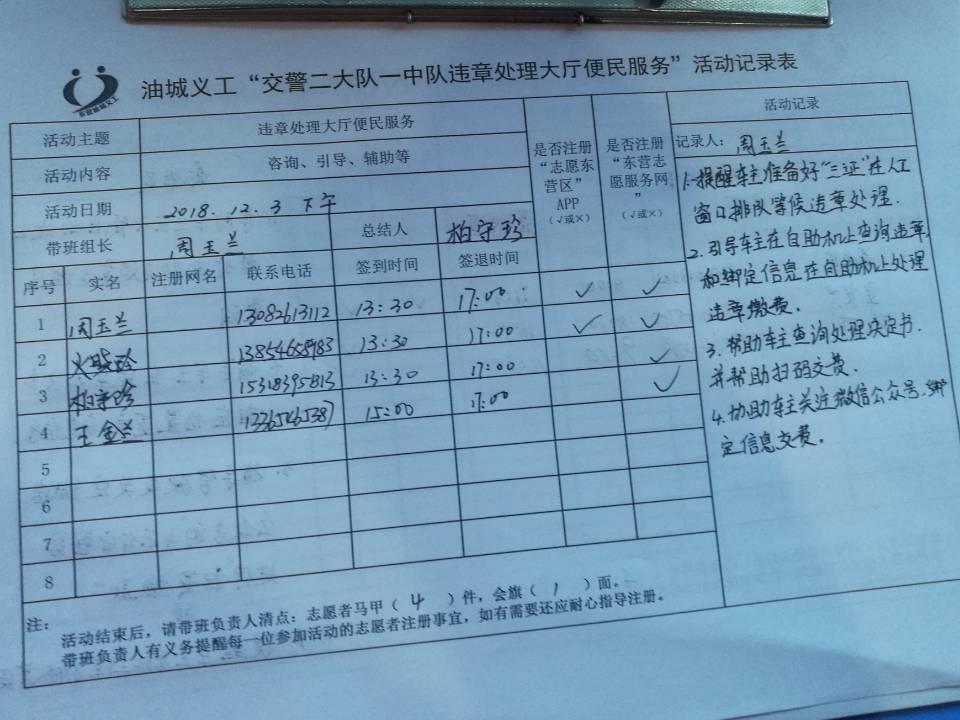 油城义工“交警二大队一中队违章处理大厅便民服务”活动记录表
活动主题 违章处理大厅便民服务
活动内容 咨询、引导、辅助等
活动日期 2018.12.3 下午
带班组长 周玉兰 总结人 柏守珍
是否注册“志愿东营区”APP（√或×）
是否注册“东营志愿服务网”（√或×）
序号 实名 注册网名 联系电话 签到时间 签退时间
1 周玉兰 13082613112 13:30 17:00 √ √
2 13:30 17:00 √ √
3 柏守珍 15318395813 13:30 17:00 √
4 王金兰 15:00 17:00 √
5
6
7
8
活动记录
记录人：周玉兰
1.提醒车主准备好“三证”在人工
窗口排队等候违章处理.
2.引导车主在自助机上查询违章,
和绑定信息在自助机上处理
违章缴费.
3.帮助车主查询处理决定书.
并帮助扫码交费.
4.协助车主关注微信公众号.绑
定信息交费.
注：
活动结束后，请带班负责人清点：志愿者马甲（ 4 ）件，会旗（ 1 ）面。
带班负责人有义务提醒每一位参加活动的志愿者注册事宜，如有需要还应耐心指导注册。